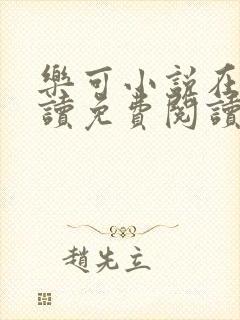 樂可小說在
讀免費閱讀
趙先立